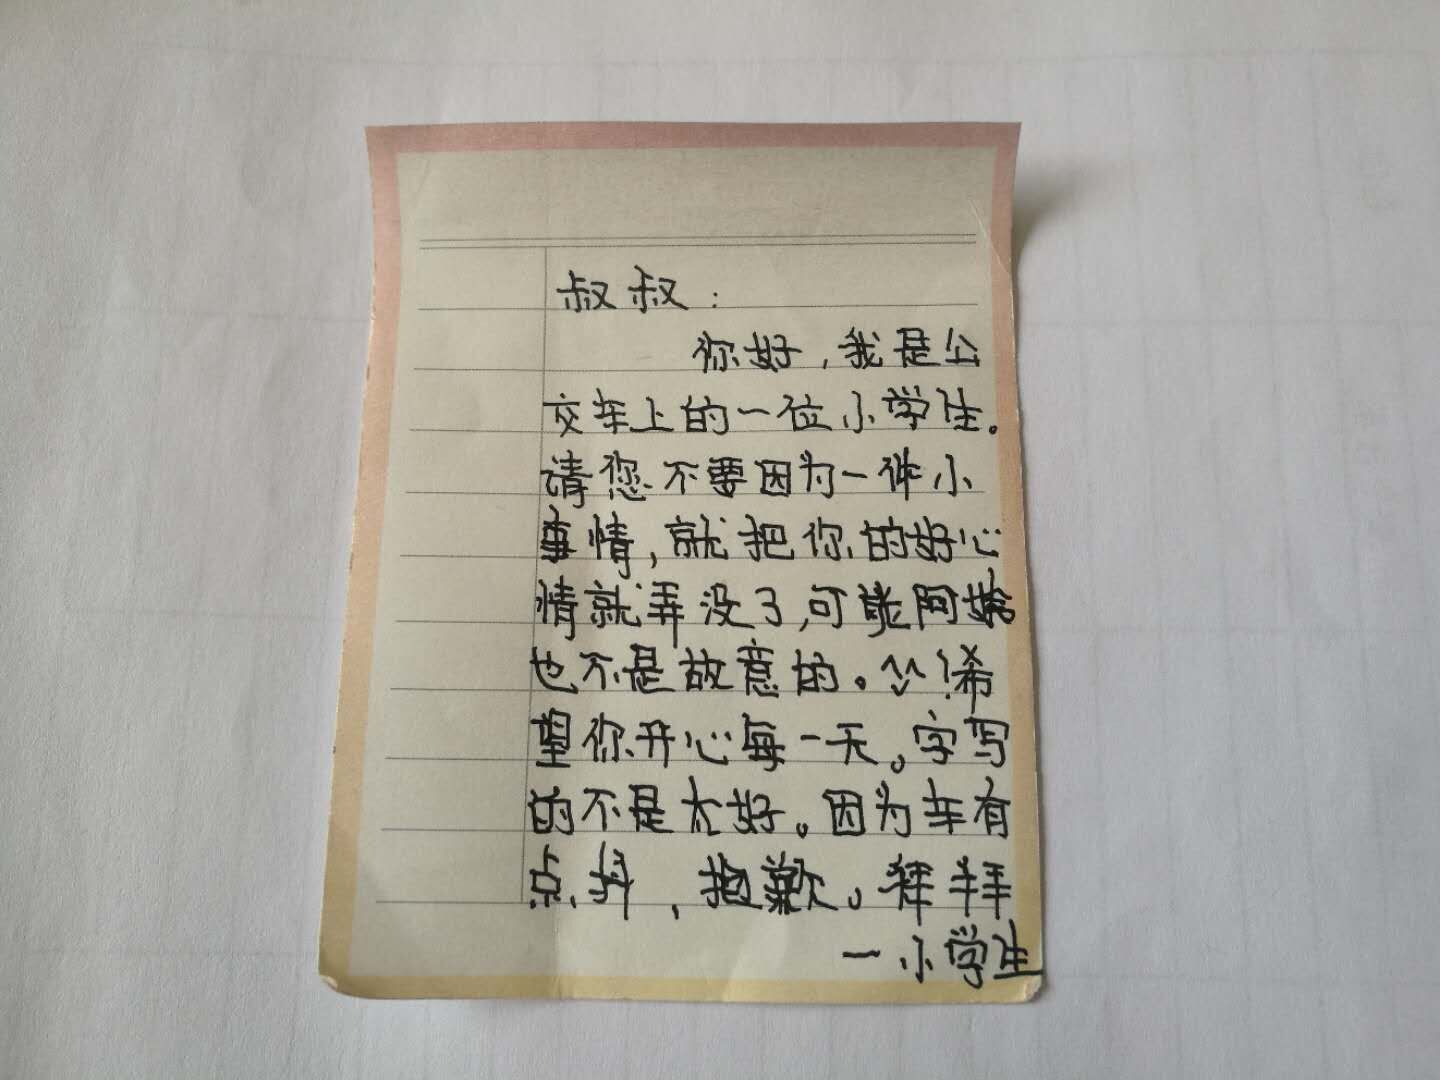 叔叔：
你好，我是公
交车上的一位小学生。
请您不要因为一件小
事情，就把你的好心
情就弄没了，可能阿姨
也不是故意的。^_^！希
望你开心每一天。字写
的不是太好。因为车有
点抖，抱歉。拜拜
一小学生